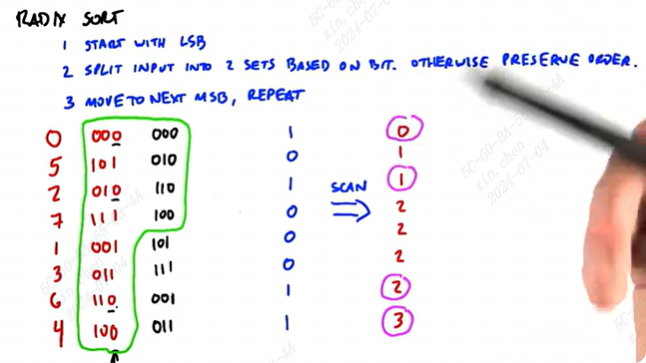 RADIX SORT
1 START WITH LSB
2 SPLIT INPUT INTO 2 SETS BASED ON BIT. OTHERWISE PRESERVE ORDER.
3 MOVE TO NEXT MSB, REPEAT
0 000 000 1 0
5 101 010 0 1
2 010 110 1 1
SCAN
7 111 100 0 2
1 001 101 0 2
3 011 111 0 2
6 110 001 1 2
4 100 011 1 3
xin.chen
2024-07-04